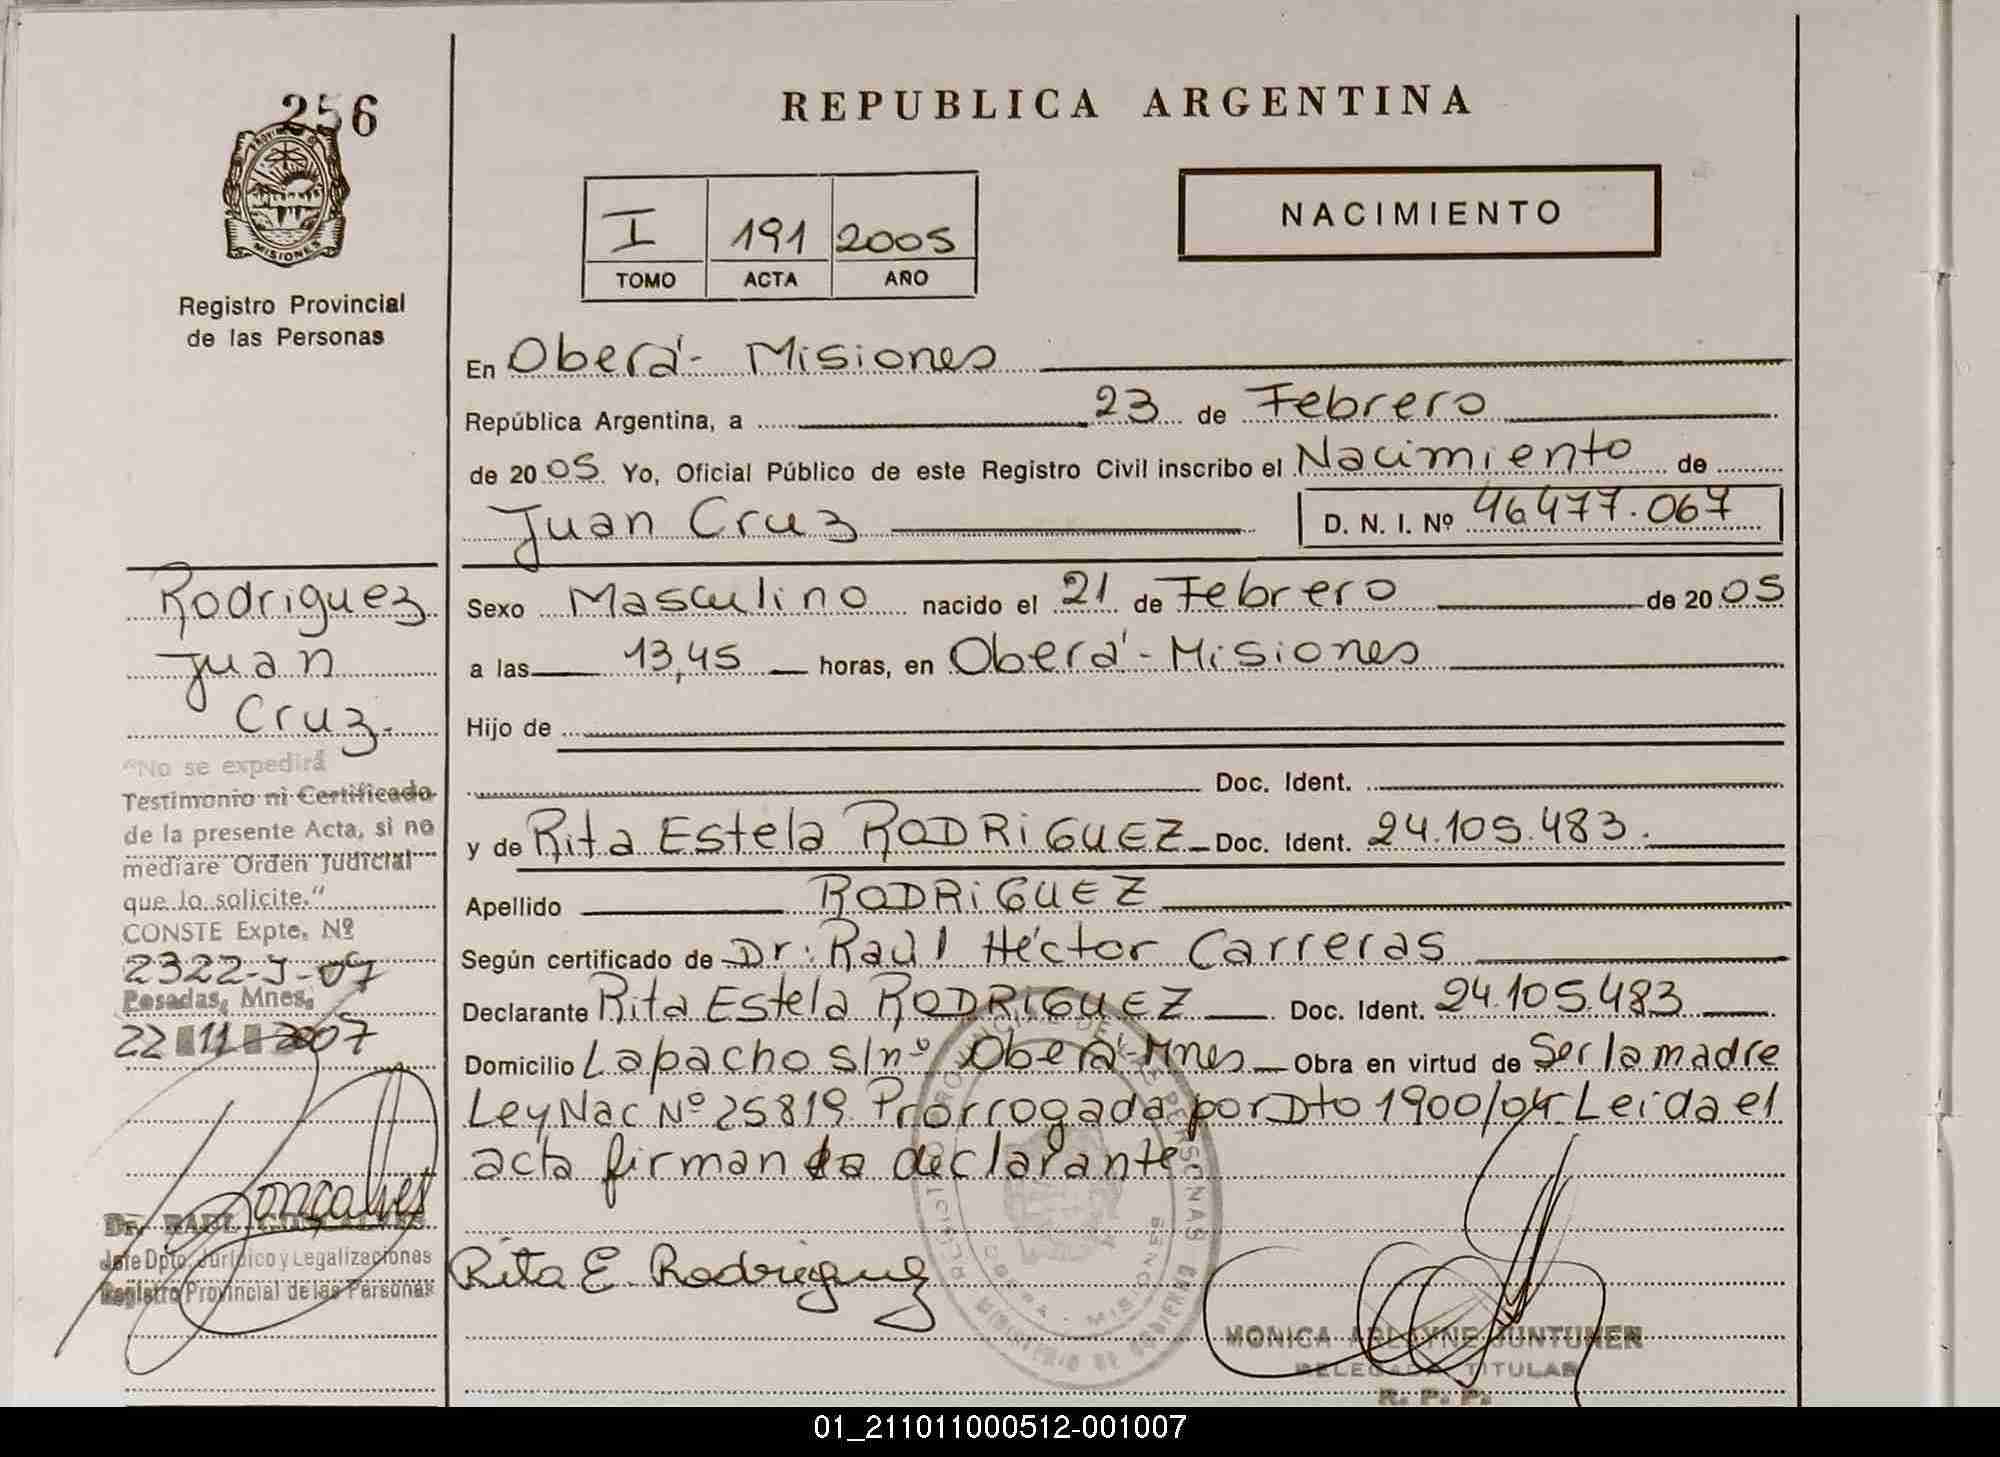 256
PROVINCIA DE
MISIONES
Registro Provincial
de las Personas
REPUBLICA ARGENTINA
I 191 2005
TOMO ACTA AÑO
NACIMIENTO
En Oberá - Misiones
República Argentina, a 23 de Febrero
de 2005 Yo, Oficial Público de este Registro Civil inscribo el Nacimiento de
Juan Cruz D. N. I. Nº 46.477.067
Rodriguez
Juan
Cruz.
Sexo Masculino nacido el 21 de Febrero de 2005
a las 13,45 horas, en Oberá - Misiones
Hijo de
Doc. Ident.
y de Rita Estela RODRIGUEZ Doc. Ident. 24.105.483.
Apellido RODRIGUEZ
Según certificado de Dr: Raúl Héctor Carreras
Declarante Rita Estela RODRIGUEZ Doc. Ident. 24.105.483
Domicilio Lapacho s/nº Oberá-Mnes Obra en virtud de Ser la madre
Ley Nac Nº 25819 Prorrogada por Dto 1900/04 Leida el
acta firman la declarante
"No se expedirá
Testimonio ni Certificado
de la presente Acta, si no
mediare Orden Judicial
que lo solicite."
CONSTE Expte. Nº
2322-J-07
Posadas, Mnes,
22 11 2007
Gonçalves
Dr. RAUL
Jefe Dpto. Jurídico y Legalizaciones
Registro Provincial de las Personas
Rita E. Rodriguez
REGISTRO PROVINCIAL DE LAS PERSONAS
OBERA - MISIONES
MINISTERIO DE GOBIERNO
MONICA ARLAYNE JUNTUNEN
DELEGADA TITULAR
R. P. P.
01_211011000512-001007